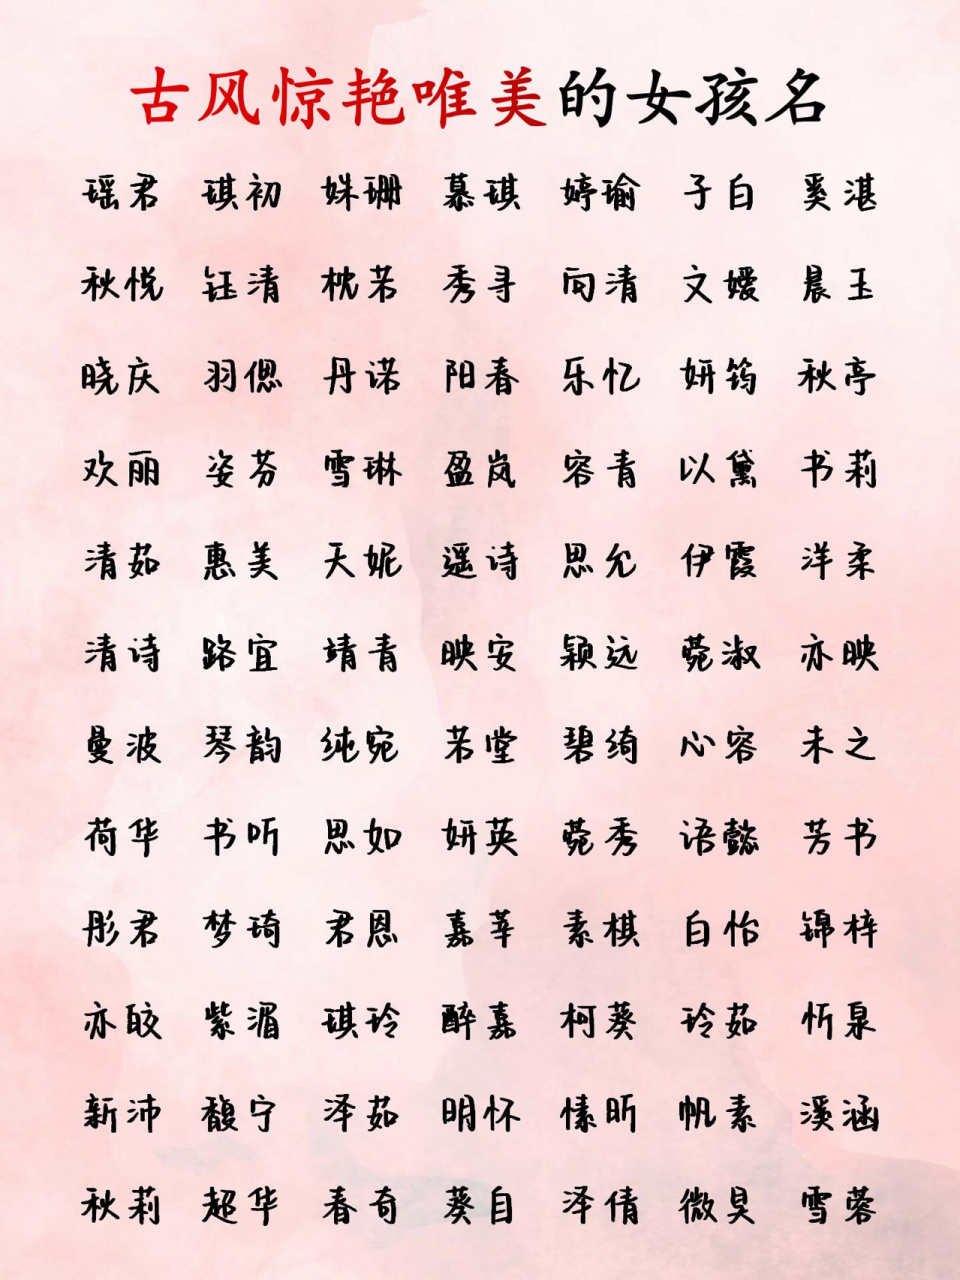 古风惊艳唯美的女孩名
瑶君 琪初 姝珊 慕琪 婷瑜 子白 奚湛
秋悦 钰清 枕若 秀寻 向清 文嫒 晨玉
晓庆 羽偲 丹诺 阳春 乐忆 妍筠 秋亭
欢丽 姿芬 雪琳 盈岚 容青 以黛 书莉
清茹 惠美 天妮 遥诗 思允 伊霞 洋柔
清诗 路宜 靖青 映安 颖远 菀淑 亦映
曼波 琴韵 纯宛 若堂 碧绮 心容 未之
荷华 书听 思如 妍英 菀秀 语懿 芳书
彤君 梦琦 君恩 嘉莘 素棋 白怡 锦梓
亦皎 紫湄 琪玲 醉嘉 柯葵 玲茹 忻泉
新沛 馥宁 泽茹 明怀 愫昕 帆素 溪涵
秋莉 超华 春奇 葵自 泽倩 微昊 雪蓉